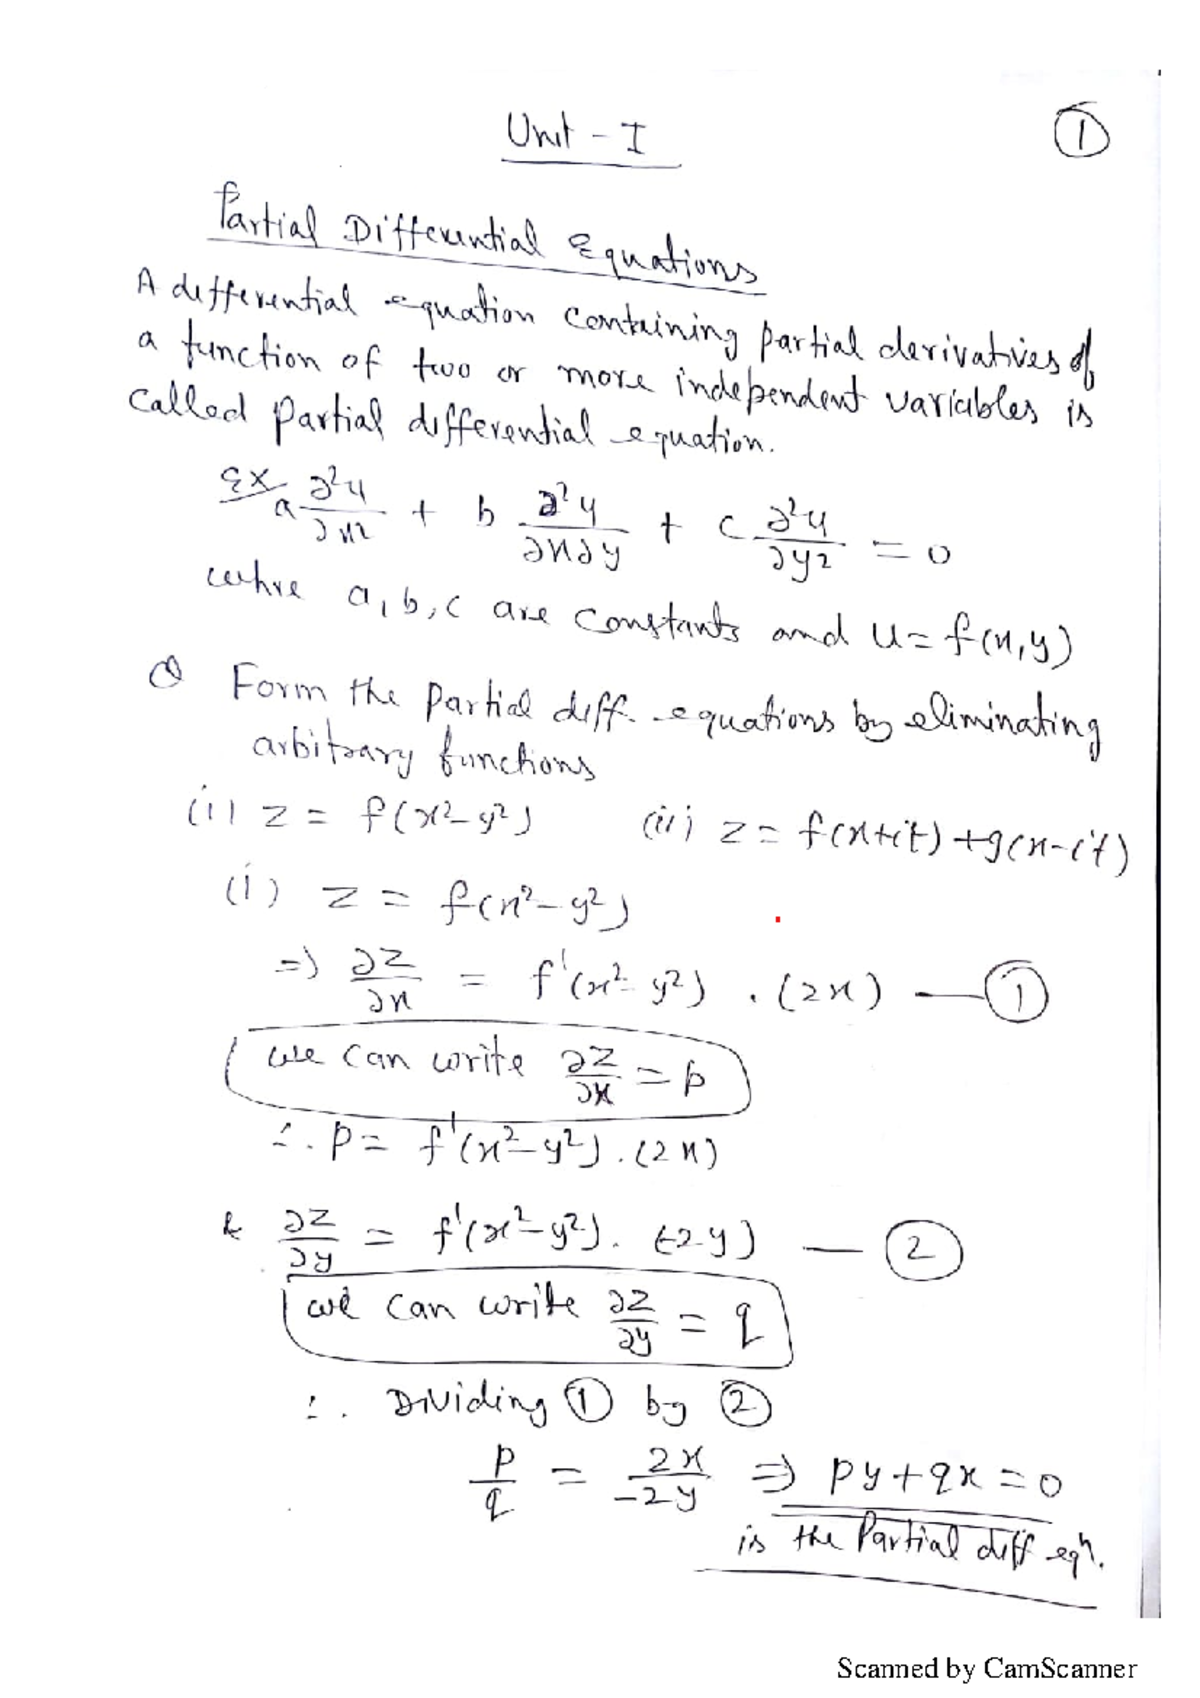 Unit - I
①
Partial Differential Equations
A differential equation containing partial derivatives of
a function of two or more independent variables is
called partial differential equation.
Ex a ∂²u/∂x² + b ∂²u/∂x∂y + c ∂²u/∂y² = 0
whre a, b, c are constants and u = f(x, y)
Q Form the partial diff. equations by eliminating
arbitrary functions
(i) z = f(x²-y²) (ii) z = f(x+it) + g(x-it)
(i) z = f(x²-y²)
=> ∂z/∂x = f'(x²-y²) . (2x) — ①
we can write ∂z/∂x = p
∴ p = f'(x²-y²) . (2x)
& ∂z/∂y = f'(x²-y²) . (-2y) — ②
we can write ∂z/∂y = q
∴ Dividing ① by ②
p/q = 2x/-2y => py + qx = 0
is the Partial diff eqn.
Scanned by CamScanner